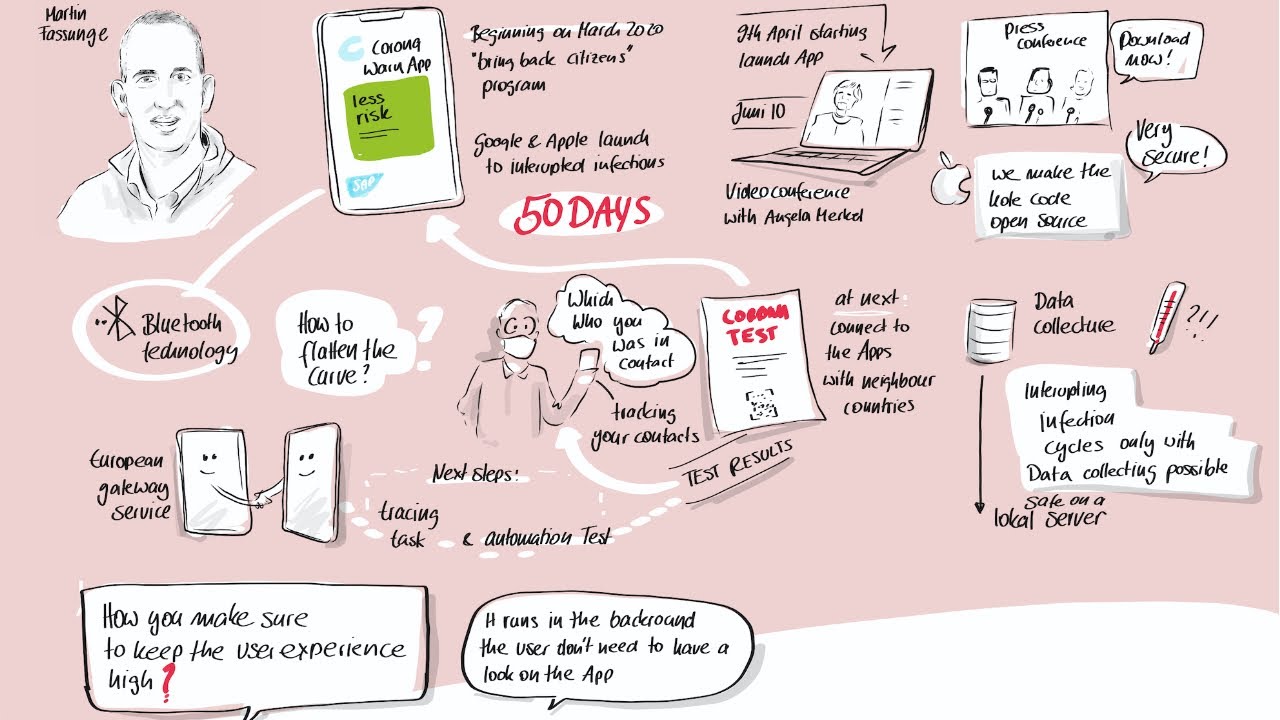 Martin
Fassunge
Corona
Warn App
less
risk
SAP
Beginning on March 2020
"bring back citizens"
program
Google & Apple launch
to interupted infections
50 DAYS
9th April starting
launch App
Juni 10
Videoconference
with Angela Merkel
Press
Conference
Download
now!
Very
secure!
we make the
hole code
open source
Bluetooth
technology
How to
flatten the
curve?
?
Which
Who you
was in
contact
tracking
your contacts
CORONA
TEST
TEST RESULTS
at next:
connect to
the Apps
with neighbour
countries
Data
collecture
?!!
Interupting
Infection
cycles only with
Data collecting possible
safe on a
lokal server
European
gateway
service
Next steps:
tracing
task & automation Test
How you make sure
to keep the userexperience
high?
It runs in the backround
the user don't need to have a
look on the App